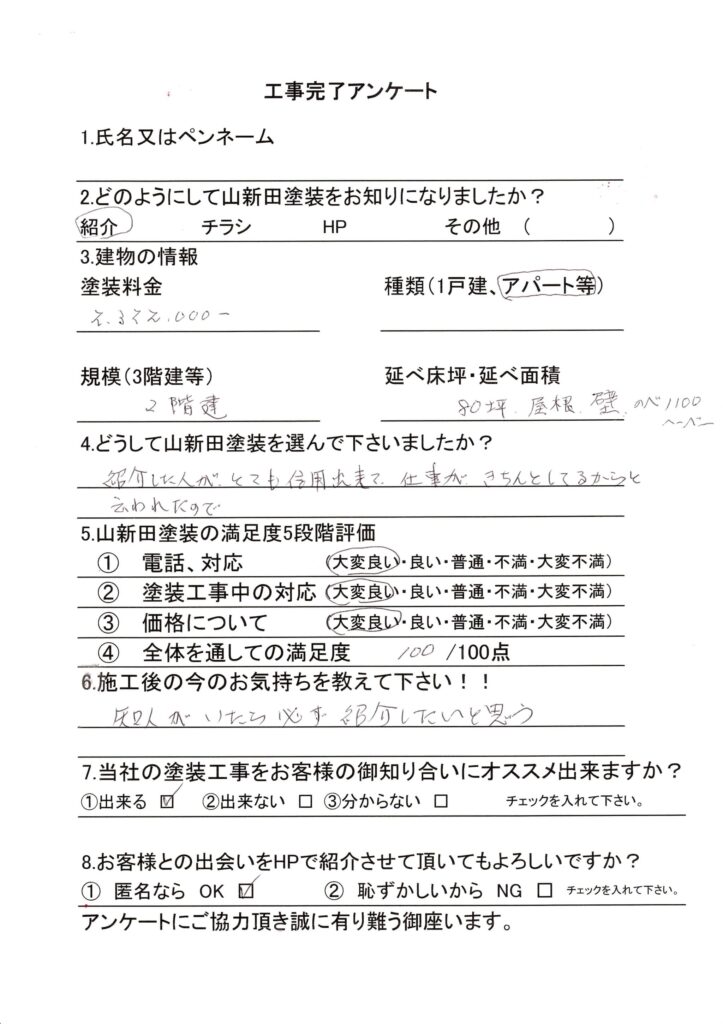 工事完了アンケート
1.氏名又はペンネーム
2.どのようにして山新田塗装をお知りになりましたか？
紹介 チラシ HP その他 ( )
3.建物の情報
塗装料金 種類(1戸建、アパート等)
000ー
規模(3階建等) 延べ床坪・延べ面積
2階建 80坪、屋根、壁、のべ1100
ヘーベー
4.どうして山新田塗装を選んで下さいましたか？
紹介した人が、とても信用出来て、仕事が、きちんとしてるからと
云われたので
5.山新田塗装の満足度5段階評価
① 電話、対応 (大変良い・良い・普通・不満・大変不満)
② 塗装工事中の対応 (大変良い・良い・普通・不満・大変不満)
③ 価格について (大変良い・良い・普通・不満・大変不満)
④ 全体を通しての満足度 100 /100点
6.施工後の今のお気持ちを教えて下さい！！
知人がいたら必ず紹介したいと思う
7.当社の塗装工事をお客様の御知り合いにオススメ出来ますか？
①出来る ☑ ②出来ない □ ③分からない □ チェックを入れて下さい。
8.お客様との出会いをHPで紹介させて頂いてもよろしいですか？
① 匿名なら OK ☑ ② 恥ずかしいから NG □ チェックを入れて下さい。
アンケートにご協力頂き誠に有り難う御座います。